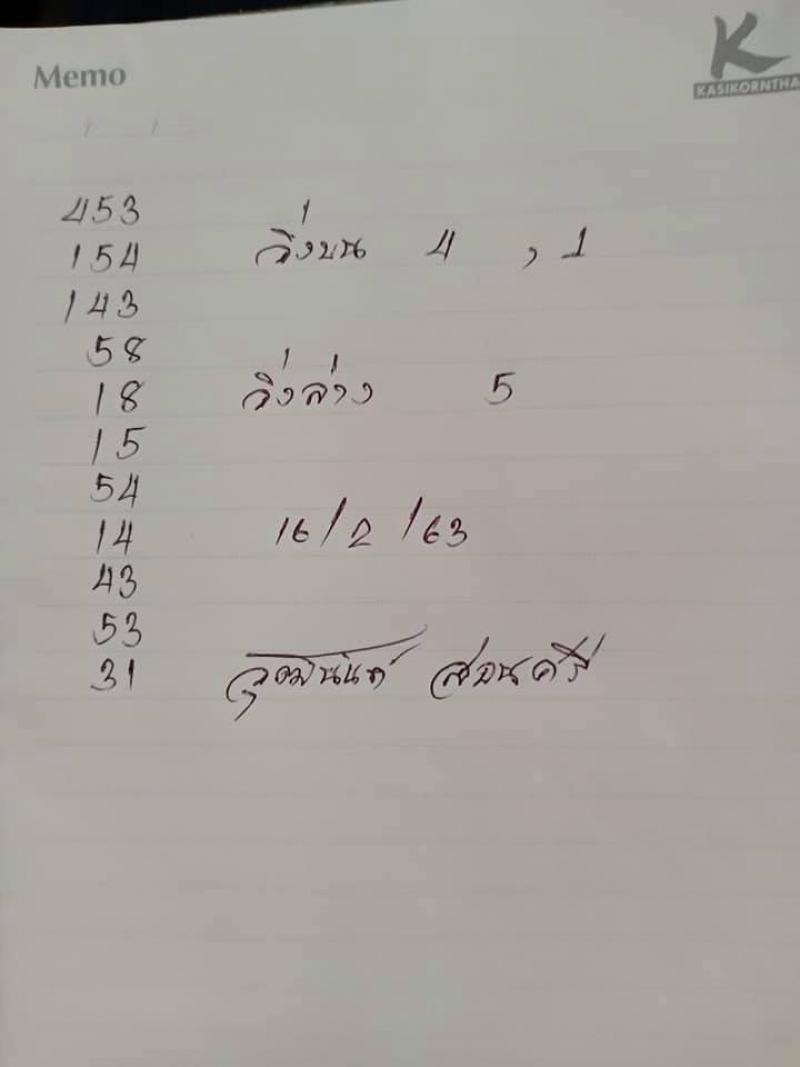 Memo
KASIKORNTHA
453
154 วิ่งบน 4 , 1
143
58
18 วิ่งล่าง 5
15
54
14 16/2/63
43
53
31 วุฒินันท์ สอนศรี